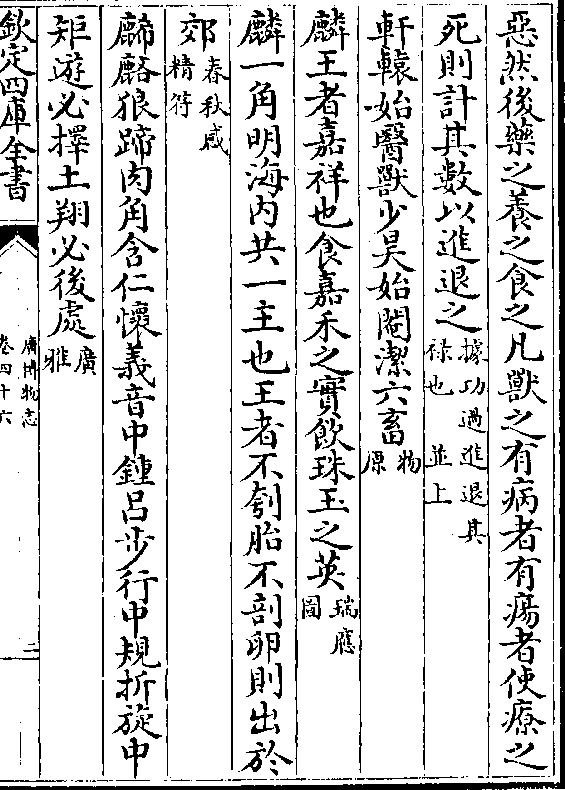 惡然後藥之養之食之凡獸之有病者有瘍者使療之
死則計其數以進退之據功過進退其祿也 並上
軒轅始醫獸少昊始閹潔六畜物原
麟王者嘉祥也食嘉禾之實飲珠玉之英瑞應圖
麟一角明海内共一主也王者不刳胎不剖卵則出於
郊春秋感精符
麃麚狼蹄肉角含仁懷義音中鍾呂步行中規折旋中
矩遊必擇土翔必後處廣雅
欽定四庫全書
廣博物志
卷四十六
二